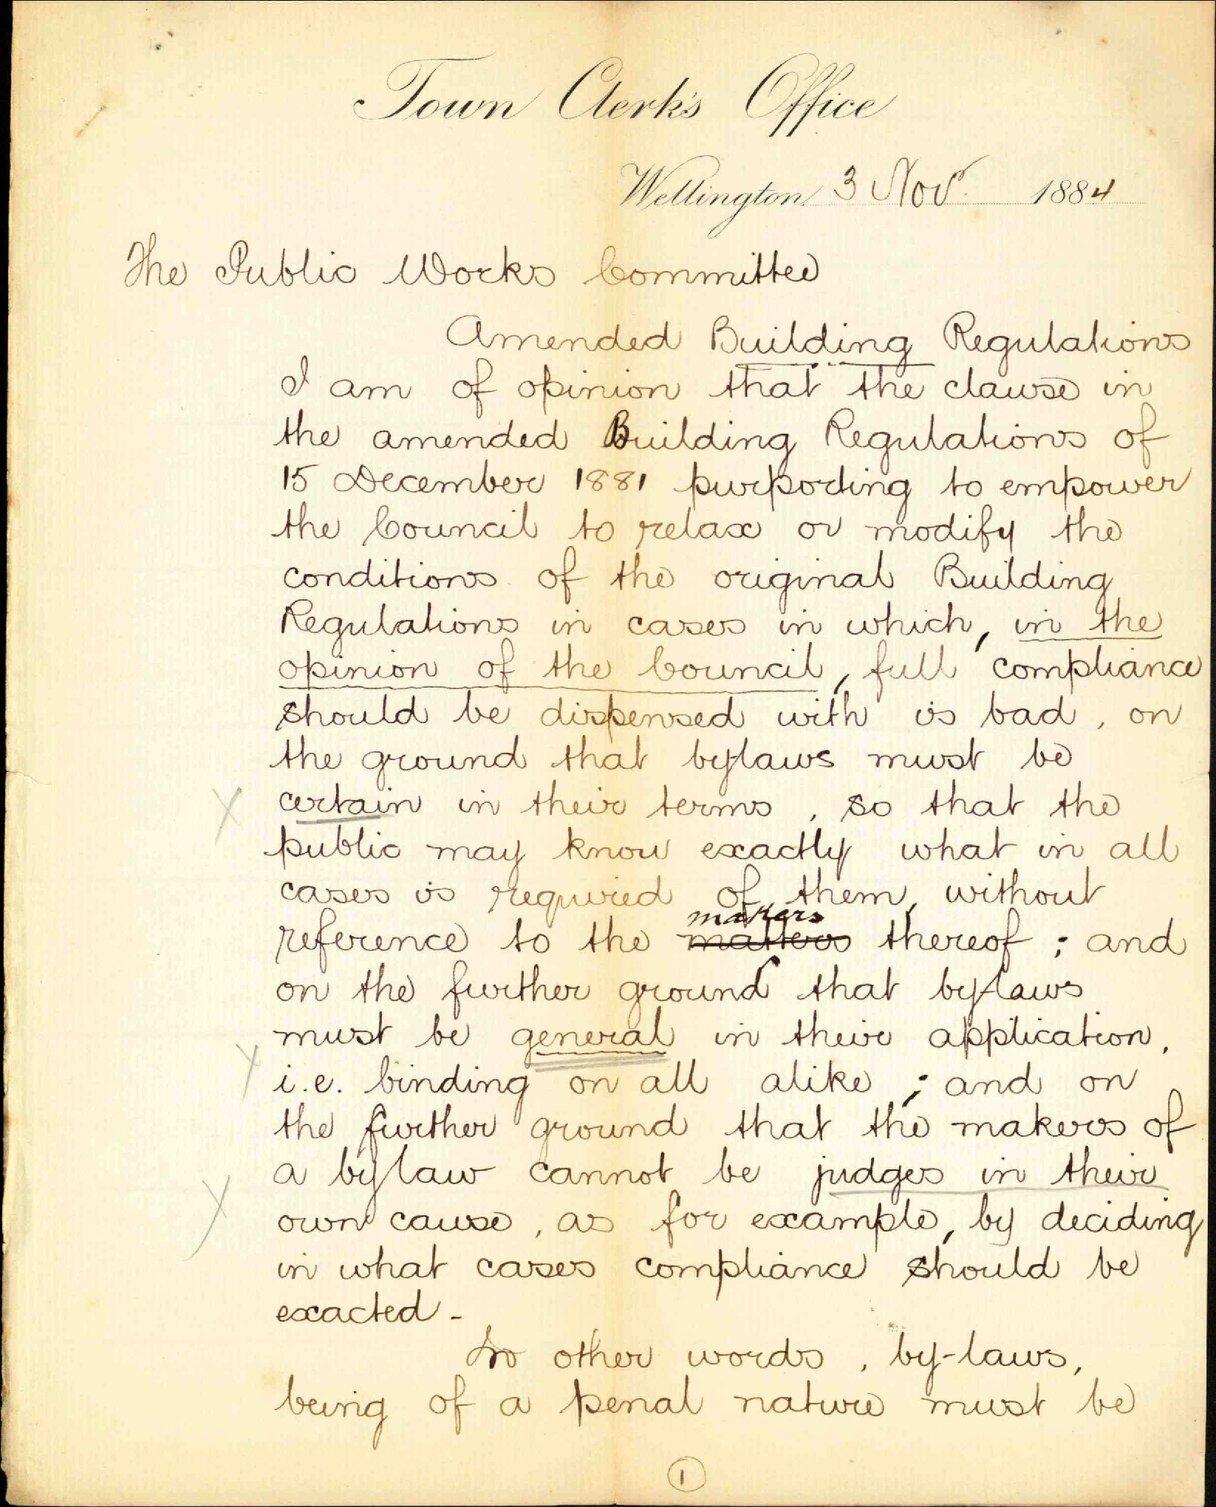 Town Clerk's Office
Wellington 3 Nov. 1884
The Public Works Committee
Amended Building Regulations
I am of opinion that the clause in
the amended Building Regulations of
15 December 1881 purporting to empower
the Council to relax or modify the
conditions of the original Building
Regulations in cases in which, in the
opinion of the Council, full compliance
should be dispensed with is bad, on
the ground that bylaws must be
certain in their terms, so that the
public may know exactly what in all
cases is required of them, without
makers
reference to the matters thereof; and
on the further ground that bylaws
must be general in their application,
i.e. binding on all alike; and on
the further ground that the makers of
a bylaw cannot be judges in their
own cause, as for example, by deciding
in what cases compliance should be
exacted -
In other words, by-laws,
being of a penal nature must be
1